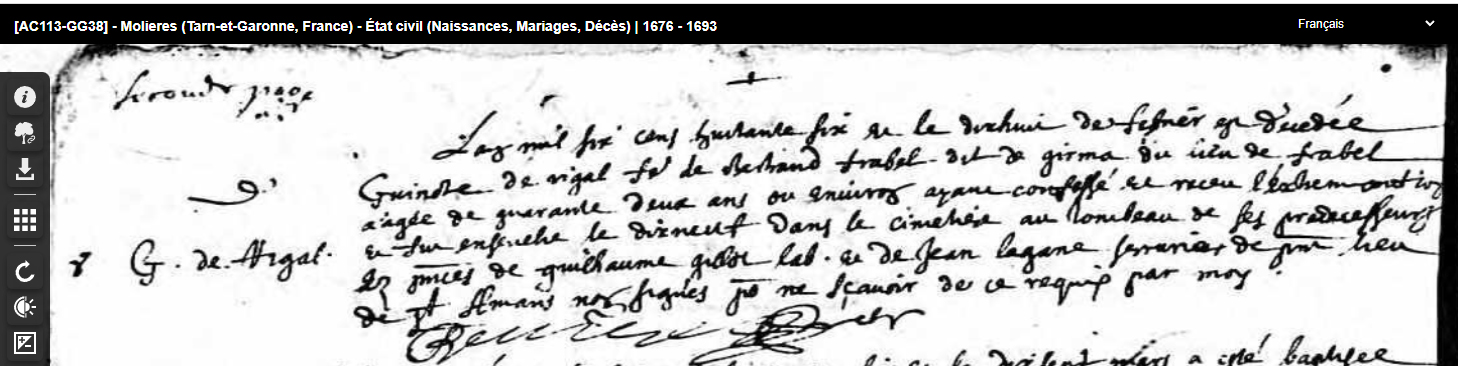 [AC113-GG38] - Molieres (Tarn-et-Garonne, France) - État civil (Naissances, Mariages, Décès) | 1676 - 1693
Français
seconde page
Lan mil six cens huitante six et le dixhuit de febrier est decedée
Guinote de rigal fe de Bertrand frabel dit de girma du lieu de frabel
aagée de quarante deux ans ou environ ayant confessé et receu
et fut ensevelie le dixneuf dans le cimetiere au tombeau de ses predecesseurs
G. de Rigal.
en pnces de guilhaume lab. et de Jean lagane serrurier de pnt lieu
de St Amans non signes po ne sçavoir de ce requis par moy
a esté baptisee